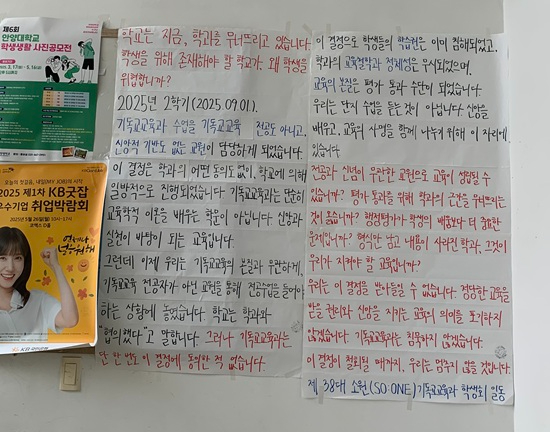 제6회
안양대학교
학생생활 사진공모전
오늘의 첫걸음, 내일(MY JOB)의 시작
2025 제1차 KB굿잡
우수기업 취업박람회
2025년 5월 26일(월) 10시~17시
코엑스 D홀
KB 국민은행
학교는 지금, 학과를 무너뜨리고 있습니다.
학생을 위해 존재해야 할 학교가, 왜 학생을
위협합니까?
2025년 2학기(2025.09.01.)
기독교교육과 수업을 기독교교육 전공도 아니고,
신앙적 기반도 없는 교원이 담당하게 되었습니다.
이 결정은 학과의 어떤 동의도 없이, 학교에 의해
일방적으로 진행되었습니다. 기독교교육과는 단순히
교육학적 이론을 배우는 학문이 아닙니다. 신앙과
실천이 바탕이 되는 교육입니다.
그런데, 이제 우리는 기독교교육의 본질과 무관하게,
기독교교육 전공자가 아닌 교원을 통해 전공수업을 들어야
하는 상황에 놓였습니다. 학교는 학과와
"협의했다"고 말합니다. 그러나 기독교교육과는
단 한 번도 이 결정에 동의한 적 없습니다.
이 결정으로 학생들의 학습권은 이미 침해되었고,
학과의 교육철학과 정체성은 무시되었으며,
교육의 본질은 평가 통과 수단이 되었습니다.
우리는 단지 수업을 듣는 것이 아닙니다. 신앙을
배우고, 교육의 사명을 함께 나누기 위해 이 자리에
있습니다
전공과 신념이 무관한 교원으로 교육이 성립될 수
있습니까? 평가 통과를 위해 학과의 근간을 무너뜨리는
것이 옳습니까? 행정평가가 학생의 배움보다 더 중요한
문제입니까? 형식만 남고 내용이 사라진 학과, 그것이
우리가 지켜야 할 교육입니까?
우리는 이 결정을 받아들일 수 없습니다. 정당한 교육을
받을 권리와 신앙을 지키는 교육의 의미를 포기하지
않겠습니다. 기독교교육과는 침묵하지 않겠습니다.
이 결정이 철회될 때까지, 우리는 멈추지 않을 것입니다.
제 38대 소원(SO:ONE) 기독교교육과 학생회 일동